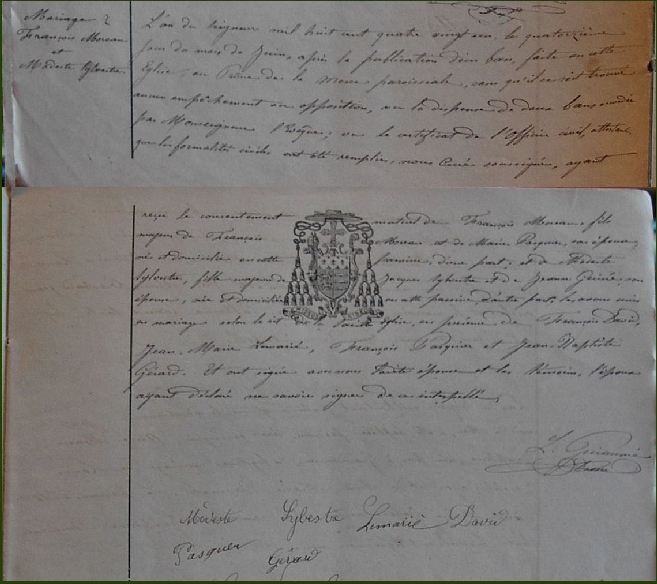 Mariage de
François Moreau
et
Modeste Sylvestre
L'an du Seigneur mil huit cent quatre vingt un, le quatorzième
jour du mois de Juin, après la publication d'un ban, faite en cette
Eglise, au Prône de la messe paroissiale, sans qu'il se soit trouvé
aucun empêchement ou opposition, vu la dispense de deux bans accordée
par Monseigneur l'Evêque; vu le certificat de l'Officier civil, attestant
que les formalités civiles ont été remplies, nous Curé soussigné, ayant
reçu le consentement mutuel de François Moreau, fils
majeur de François Moreau et de Marie Pasquer, son épouse,
né et domicilié en cette paroisse, d'une part; et de Modeste
Sylvestre, fille majeure de Jacques Sylvestre et de Jeanne son
épouse, née et domiciliée en cette paroisse, d'autre part, les avons unis
en mariage selon le rit de la Sainte Eglise, en présence de François David,
Jean-Marie Lemarié, François Pasquer et Jean-Baptiste
Gérard. Et ont signé avec nous l'épouse et les témoins, l'époux
ayant déclaré ne savoir signer de ce interpellé.
Modeste Sylvestre Lemarié David
Pasquer Gérard